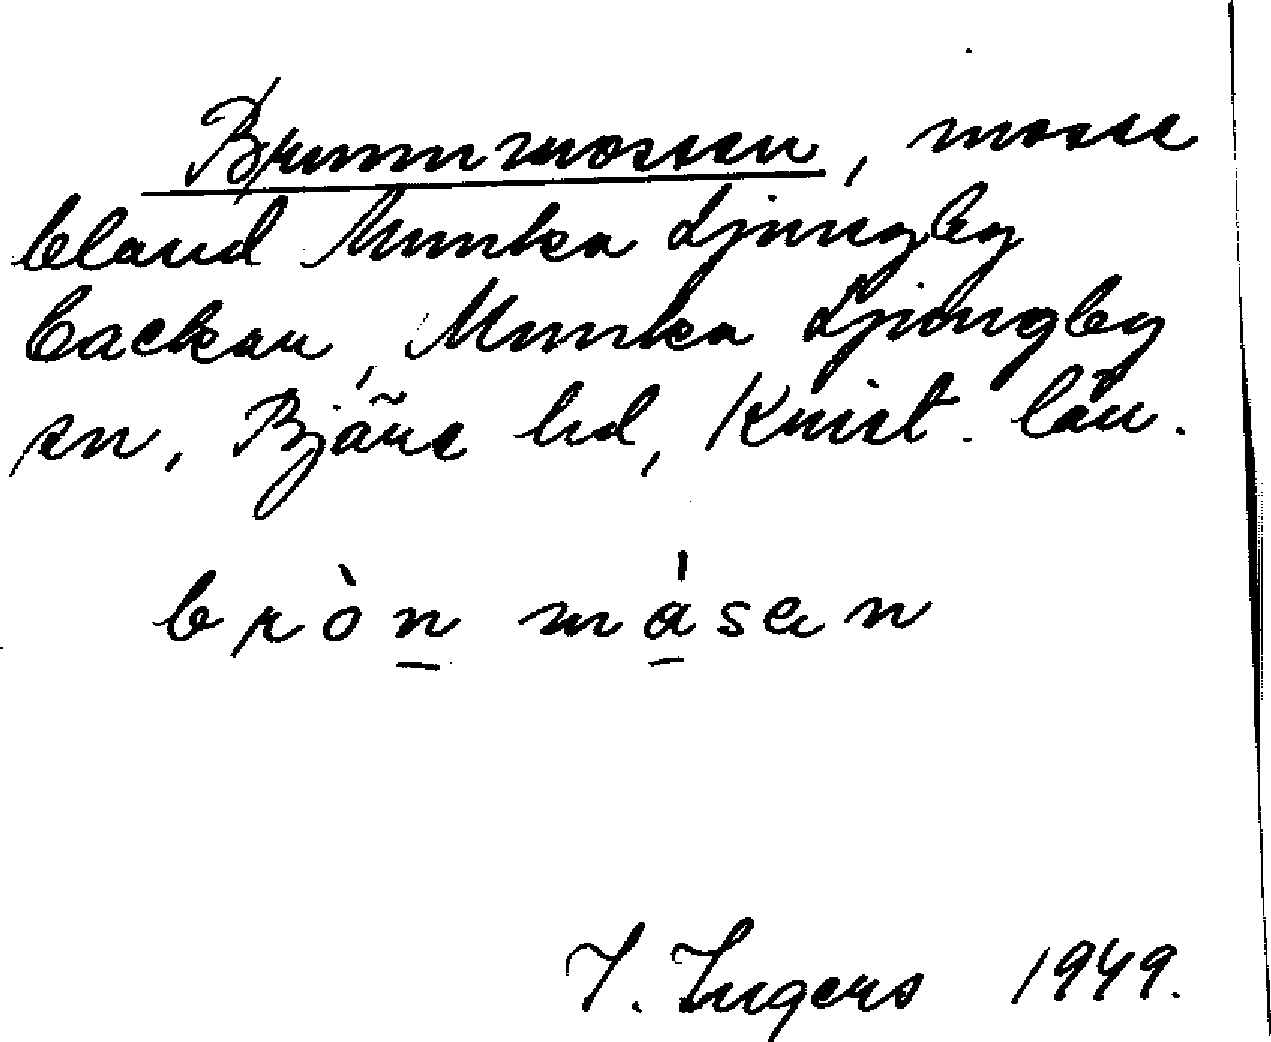 Brunnmossen, mosse
bland Munka Ljungby
backar, Munka Ljungby
sn, Bjäre hd, Krist. län.
bròn måsen
I. Ingers 1949.